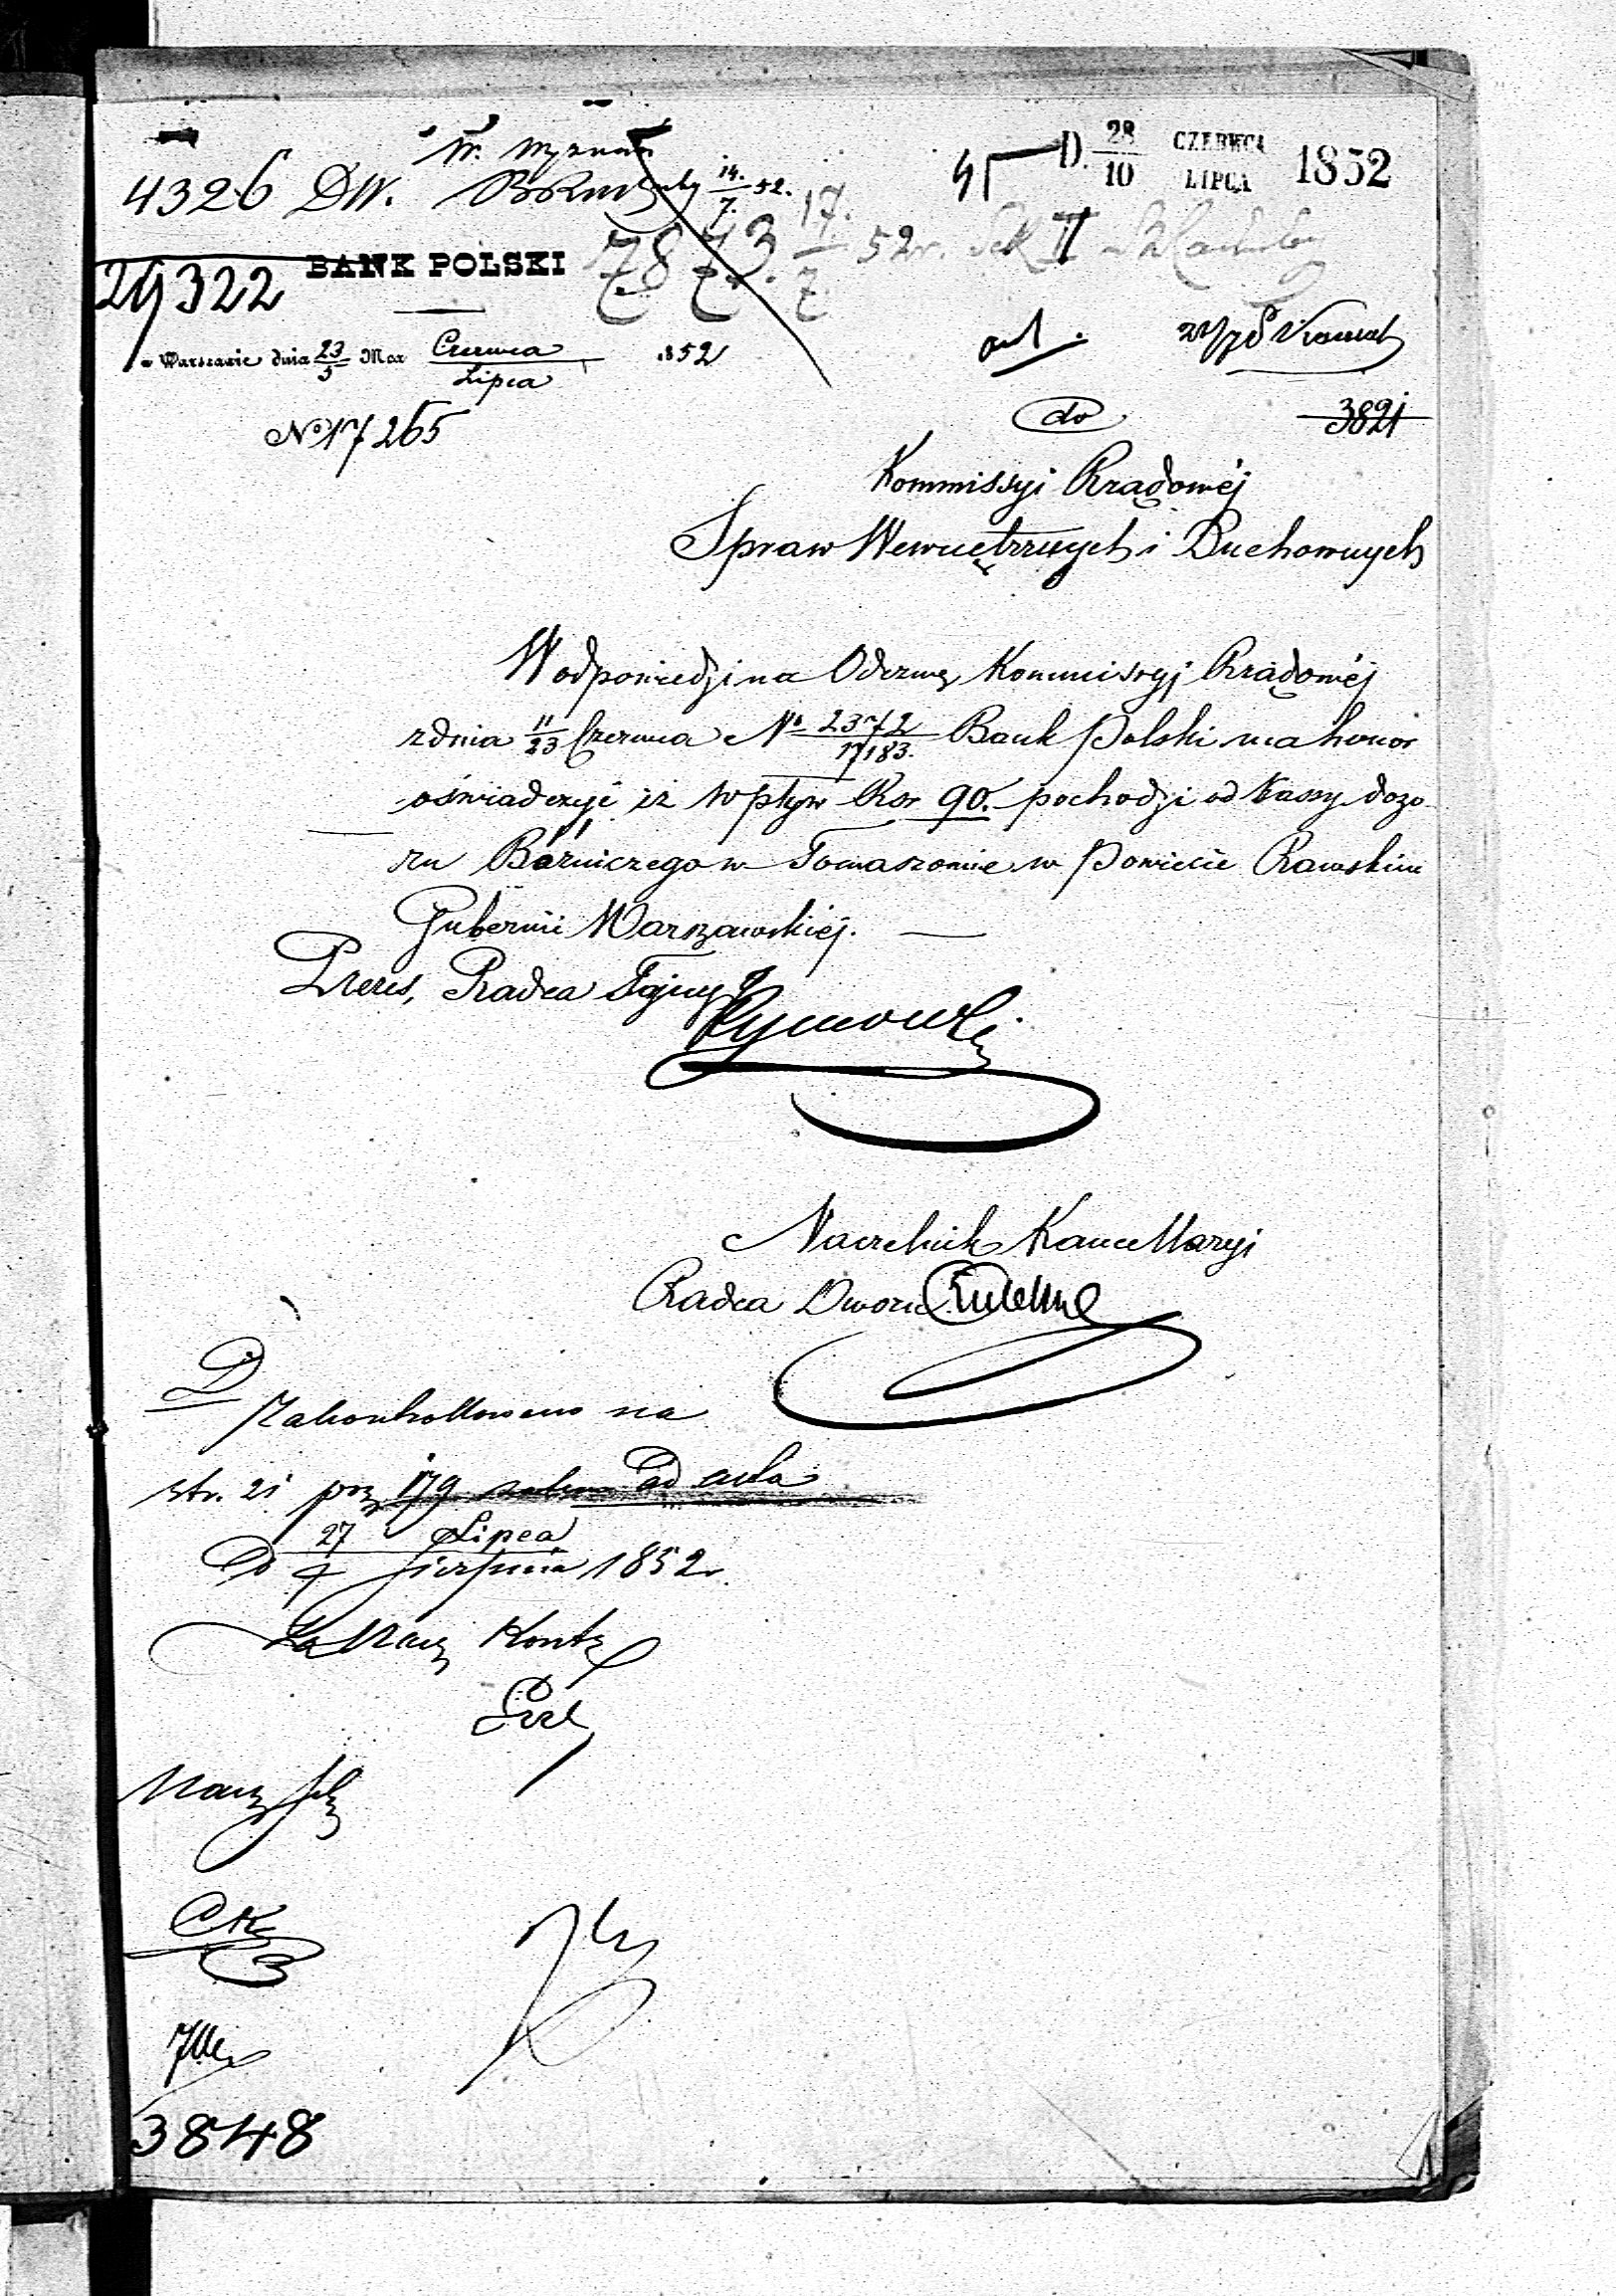 4326 DW. 14/7 52.
D. 28/10 CZERWCA LIPCA 1852
7873 17/7 52r. Sek II
29322 BANK POLSKI
w Warszawie dnia 23/5 Mca Czerwca/Lipca 1852
No 17265
do 3821
Kommissyi Rządowéj
Spraw Wewnętrznych i Duchownych
W odpowiedzi na Odezwę Kommissyj Rządowéj
z dnia 11/23 Czerwca No 2372/17183. Bank Polski ma honor
oświadczyć iż wpływ Rsr 90. pochodzi od Kassy dozo
ru Bóżniczego w Tomaszowie w Powiecie Rawskim
Gubernii Warszawskiéj.
Prezes, Radca Tajny
Naczelnik Kancellaryi
Radca Dworu
Zakontrollowano na
str. 21 poz 179
D 27 Lipca
4 Sierpnia 1852r.
Za Nacz Kontr
Nacz
3848